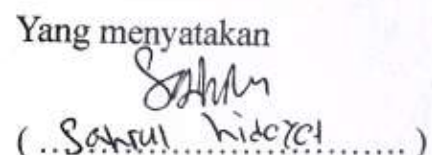 Yang menyatakan
( ..Sahrul hidayat...... )